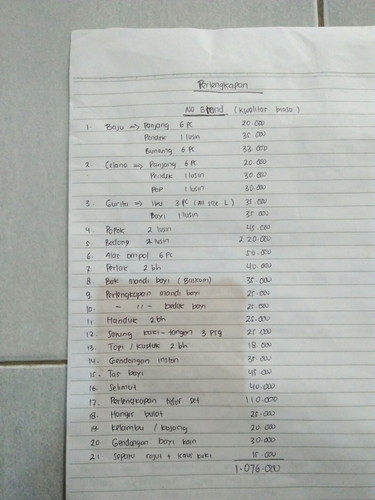 Perlengkapan
No Brand (kualitas bagus)
1. Baju => Panjang 6 Pc 20.000
Pendek 1 lusin 30.000
Buntung 6 Pc 33.000
2. Celana => Panjang 6 Pc 20.000
Pendek 1 lusin 30.000
Pop 1 lusin 30.000
3. Gurita => Ibu 3 Pc (All size L) 35.000
Bayi 1 lusin 35.000
4. Popok 2 lusin 45.000
5. Bedong 2 lusin 220.000
6. Alas ompol 6 Pc 50.000
7. Perlak 2 bh 40.000
8. Bak mandi bayi (Baskom) 35.000
9. Perlengkapan mandi bayi 25.000
10. - 11 - bedak bayi 25.000
11. Handuk 2 bh 25.000
12. Sarung kaki-tangan 3 psg 25.000
13. Topi / kupluk 2 bh 18.000
14. Gendongan instan 35.000
15. Tas bayi 45.000
16. Selimut 40.000
17. Perlengkapan tidur set 110.000
18. Hanger bulat 25.000
19. Kelambu / kojong 20.000
20. Gendongan bayi kain 30.000
21. Sepatu rajut + kaus kaki 15.000
1.076.000